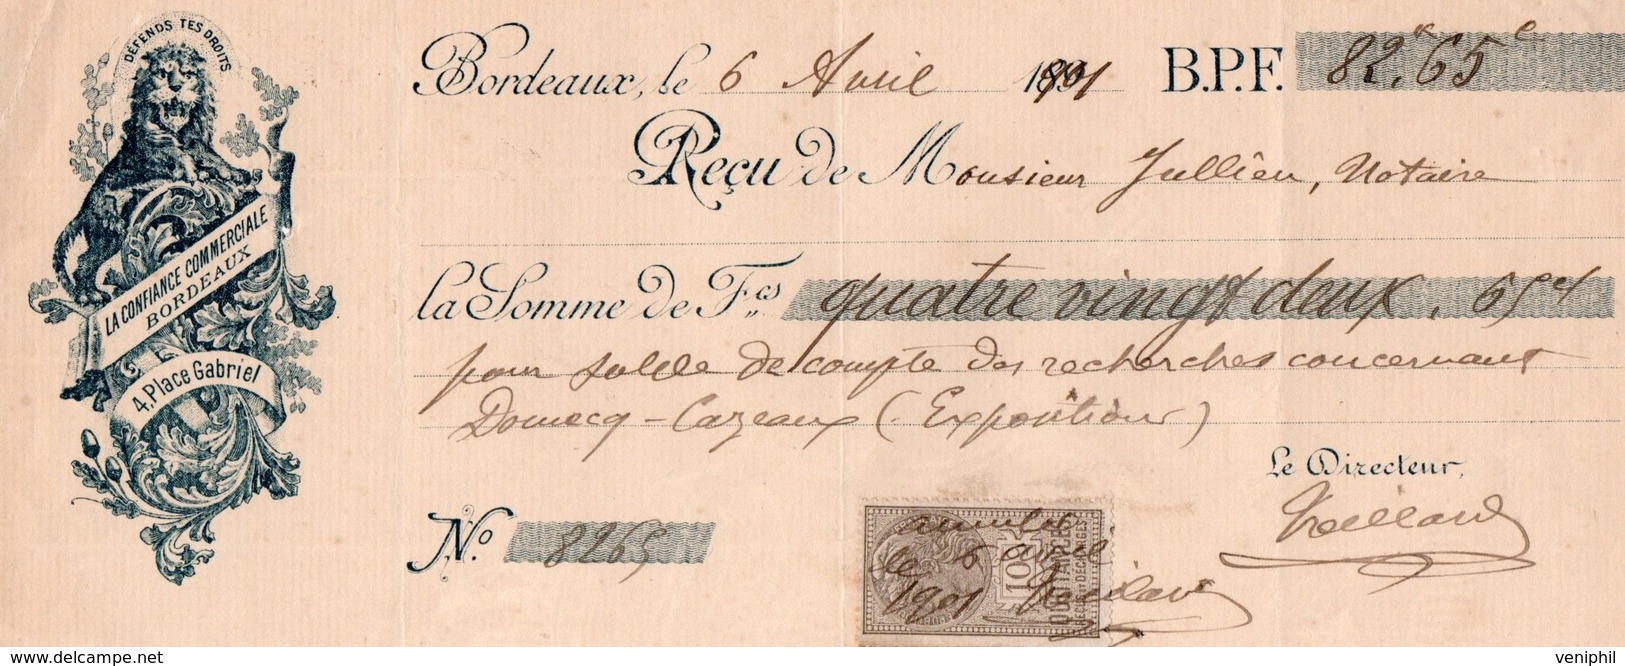 DÉFENDS TES DROITS
LA CONFIANCE COMMERCIALE
BORDEAUX
4, Place Gabriel
Bordeaux, le 6 Avril 1901 B.P.F. 82.65
Reçu de Monsieur Jullien, Notaire
la Somme de Fcs quatre vingt deux, 65 ct
pour solde de compte des recherches concernant
Domecq-Cazeaux (Exposition)
Le Directeur,
No. 8265
annulé
le 6 avril
1901
10c
QUITTANCES
REÇUS ET DÉCHARGES
veniphil